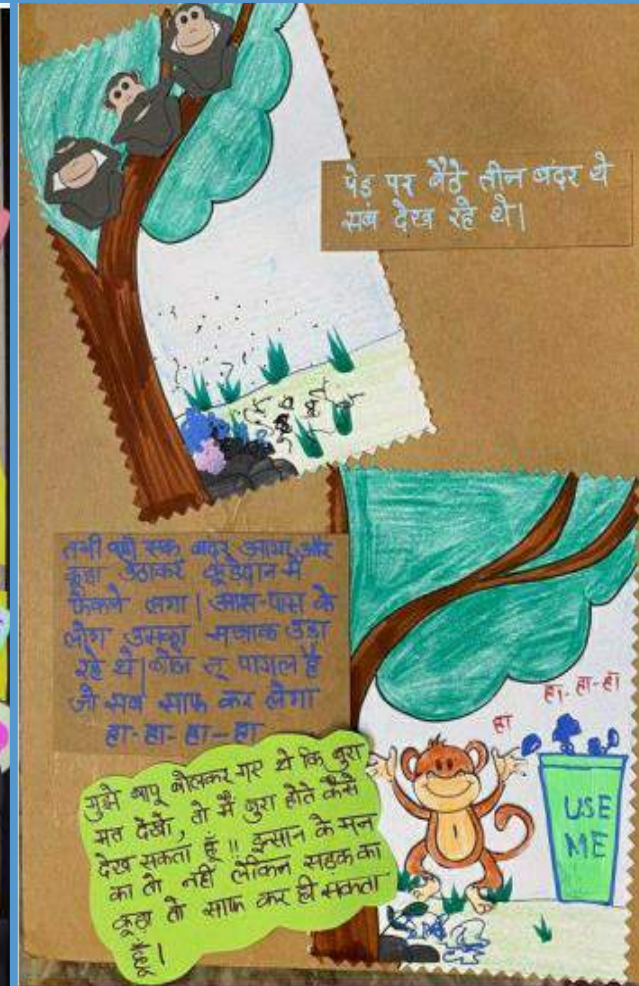 पेड़ पर बैठे तीन बंदर थे
सब देख रहे थे|
तभी वहाँ एक बंदर आया और
कूड़ा उठाकर कूड़ेदान में
फेंकने लगा| आस-पास के
लोग उसका मजाक उड़ा
रहे थे| बोला तू पागल है
जो सब साफ कर लेगा
हा-हा-हा-हा
हा
हा-हा-हा
USE
ME
मुझे बापू बोलकर गए थे कि बुरा
मत देखो, तो मैं बुरा होते कैसे
देख सकता हूँ !! इन्सान के मन
का तो नहीं लेकिन सड़क का
कूड़ा तो साफ कर ही सकता
हूँ|